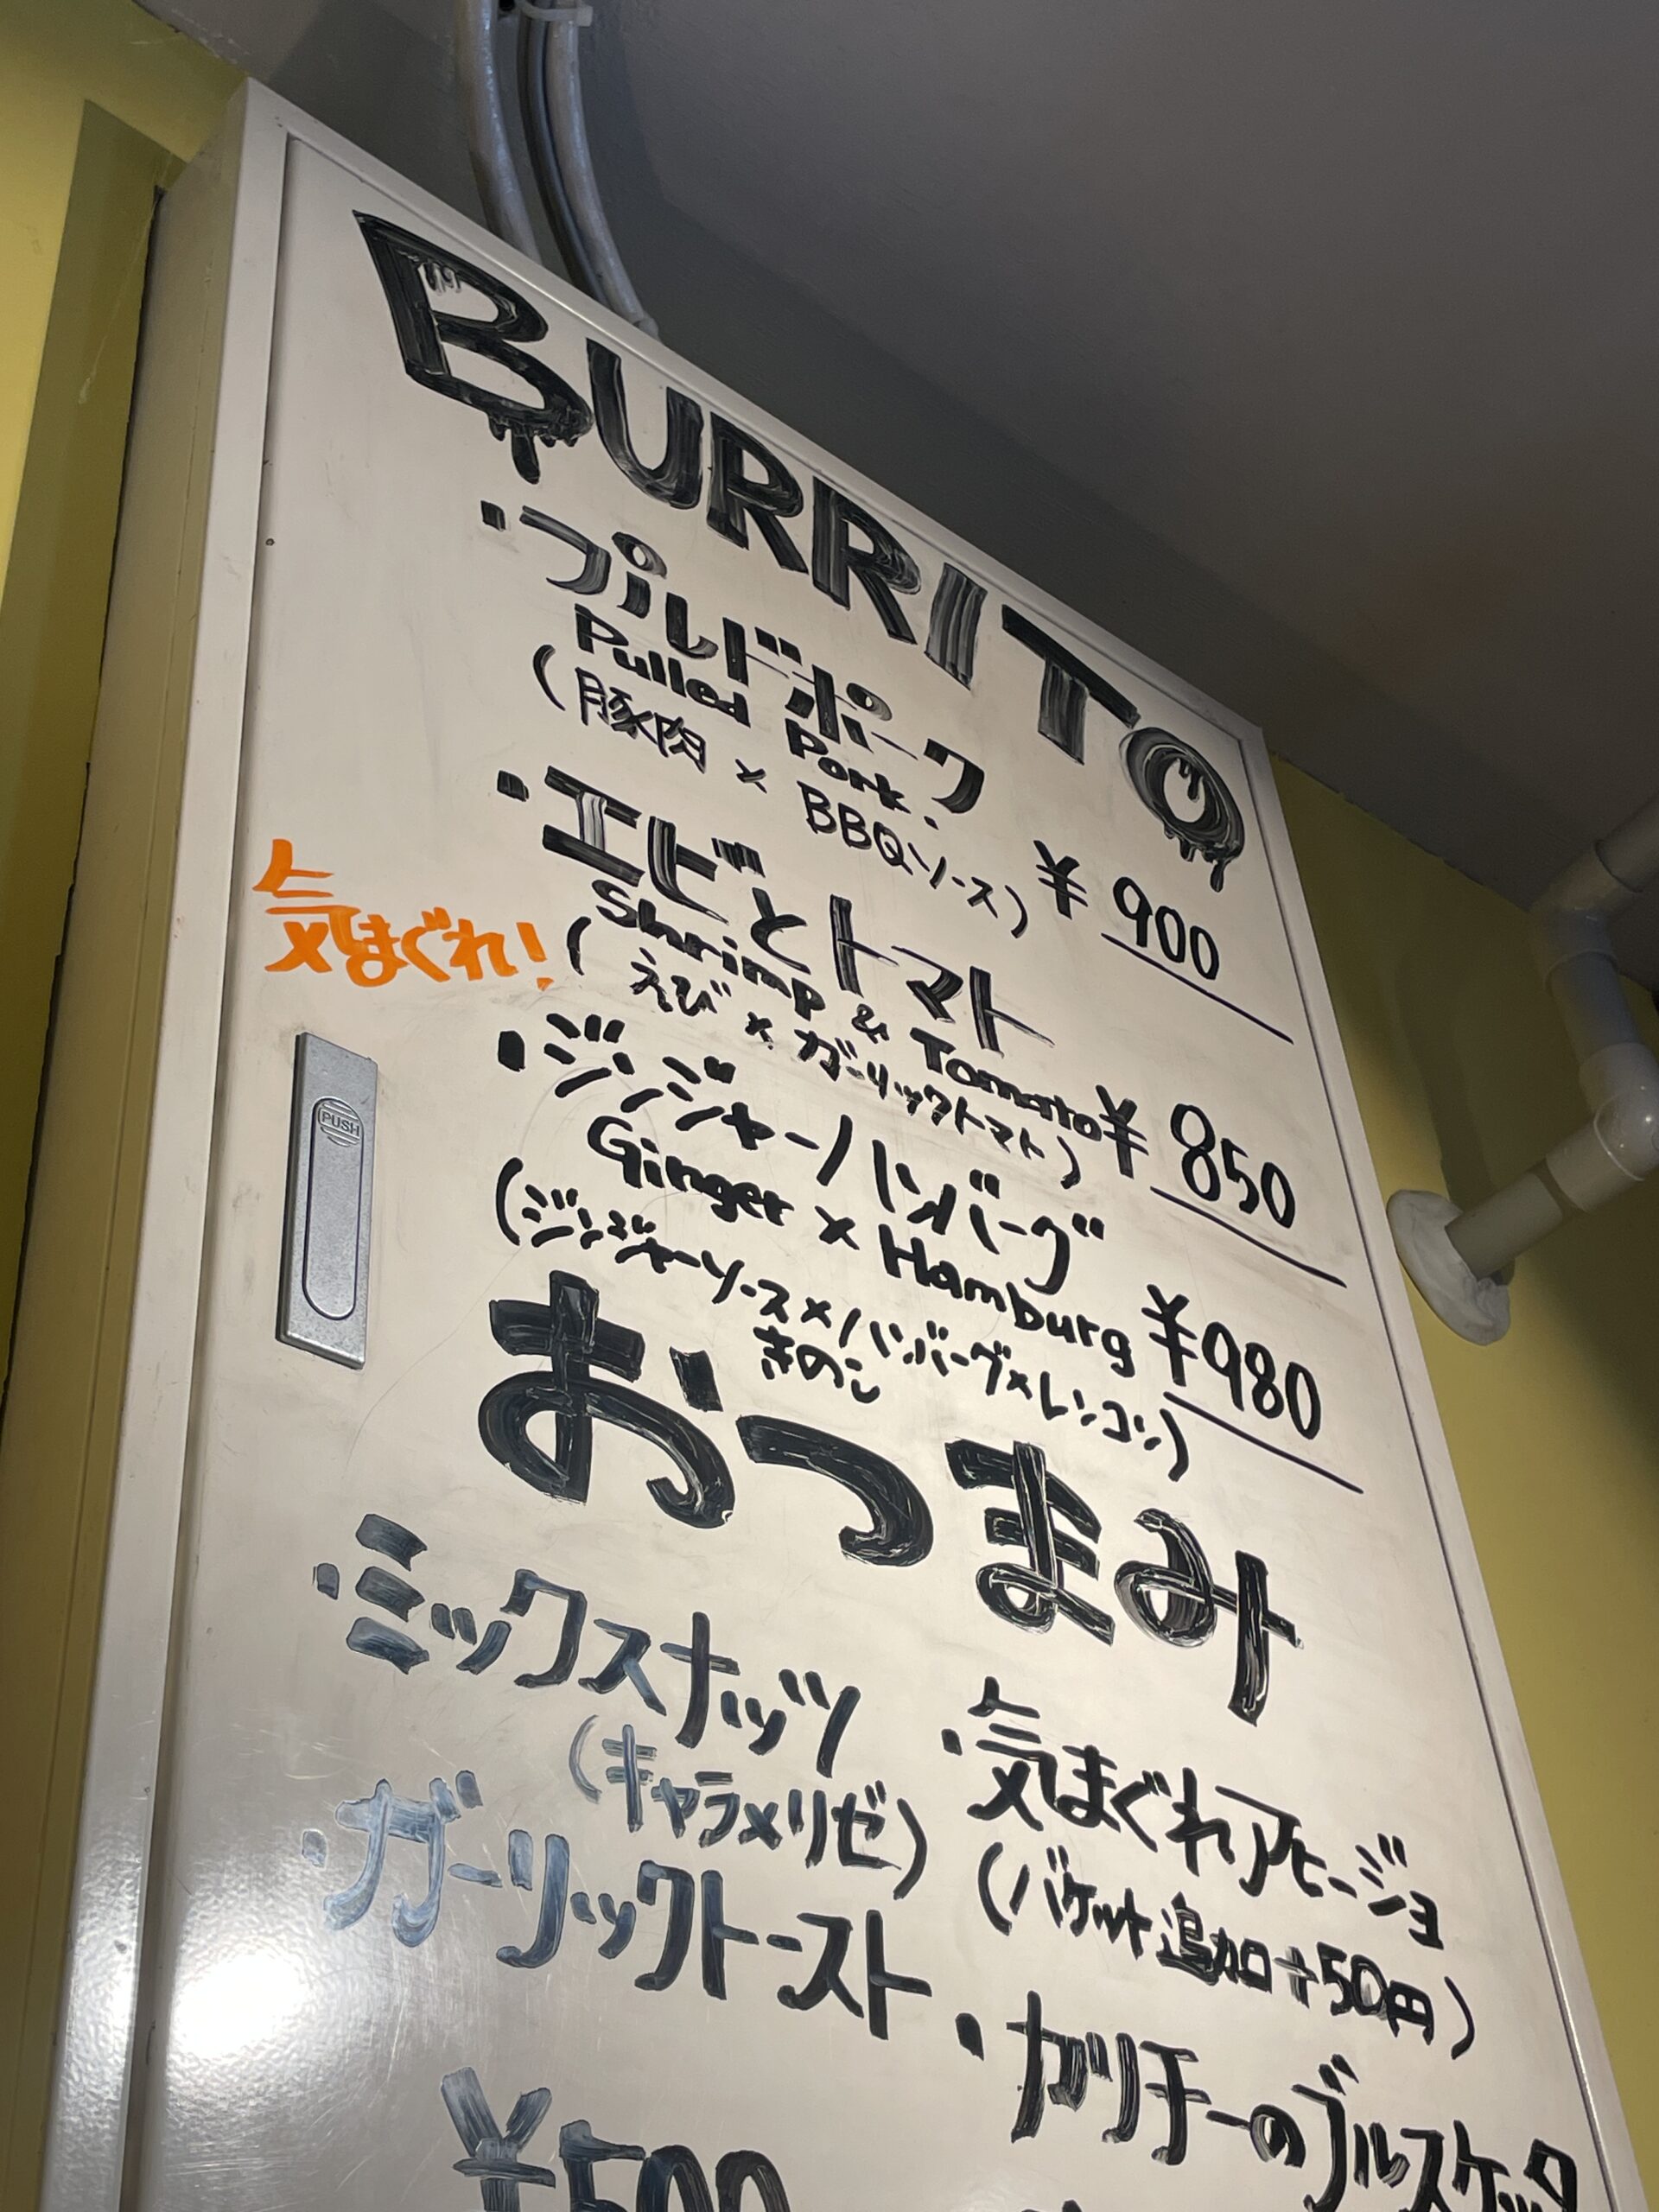 BURRITO
・プルドポーク
Pulled Pork.
(豚肉 × BBQソース) ¥900
・エビとトマト
Shrimp & Tomato
気まぐれ!
(えび × ガーリックトマト) ¥850
・ジンジャーハンバーグ
Ginger × Hamburg
(ジンジャーソース×ハンバーグ×レンコン) ¥980
きのこ
PUSH
おつまみ
・ミックスナッツ
(キャラメリゼ)
・ガーリックトースト
¥500
・気まぐれアヒージョ
(バケット追加+50円)
・ガリチーのブルスケッタ